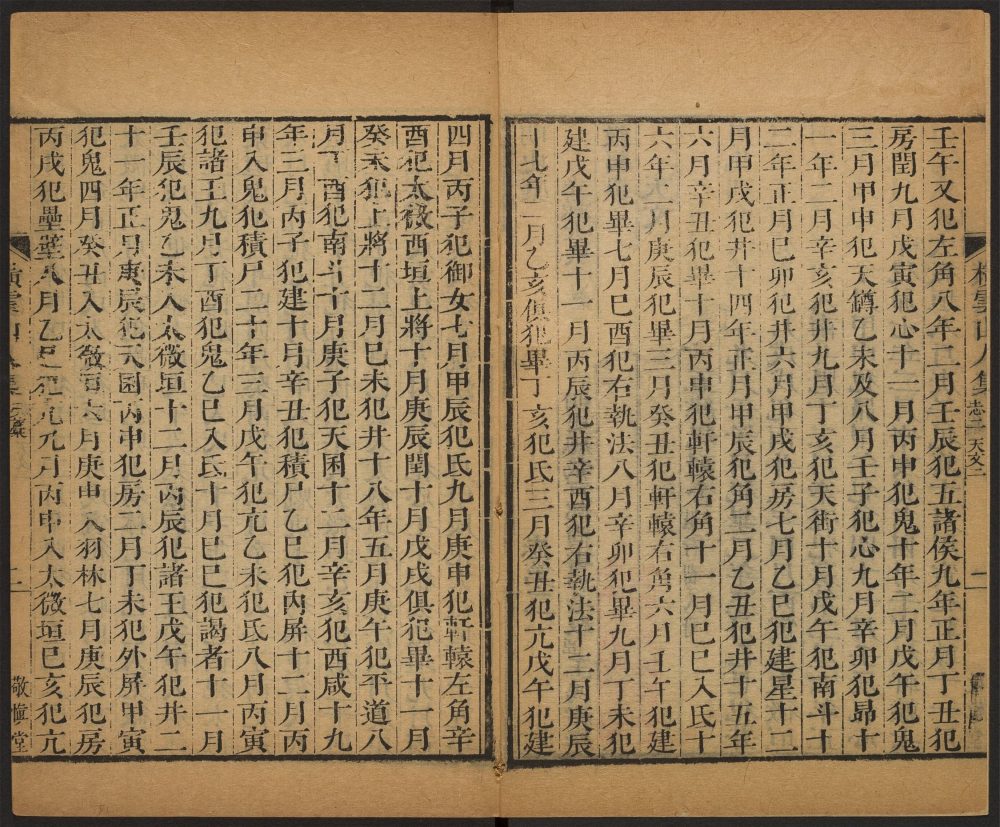 壬午又犯左角八年二月壬辰犯五諸侯九年正月丁丑犯
房閏九月戊寅犯心十一月丙申犯鬼十年二月戊午犯鬼
三月甲申犯天罇乙未及八月壬子犯心九月辛卯犯昴十
一年二月辛亥犯井九月丁亥犯天街十月戊午犯南斗十
二年正月巳卯犯井六月甲戌犯房七月乙巳犯建星十二
月甲戌犯井十四年正月甲辰犯角二月乙丑犯井十五年
六月辛丑犯畢十月丙申犯軒轅右角十一月巳巳入氐十
六年二月庚辰犯畢三月癸丑犯軒轅右角六月壬午犯建
丙申犯畢七月巳酉犯右執法八月辛卯犯畢九月丁未犯
建戊午犯畢十一月丙辰犯井辛酉犯右執法十二月庚辰
十七年二月乙亥俱犯畢丁亥犯氐三月癸丑犯亢戊午犯建
四月丙子犯御女七月甲辰犯氐九月庚申犯軒轅左角辛
酉犯太微西垣上將十月庚辰閏十月戊戌俱犯畢十一月
癸未犯上將十二月巳未犯井十八年五月庚午犯平道八
月丁酉犯南斗十月庚子犯天囷十二月辛亥犯西咸十九
年三月丙子犯建十月辛丑犯積尸乙巳犯內屏十二月丙
申入鬼犯積尸二十年三月戊午犯亢乙未犯氐八月丙寅
犯諸王九月丁酉犯鬼乙巳入氐十月巳巳犯謁者十一月
壬辰犯鬼乙未入太微垣十二月丙辰犯諸王戊午犯井二
十一年正月庚辰犯天囷丙申犯房二月丁未犯外屏甲寅
犯鬼四月癸丑入太微垣六月庚申入羽林七月庚辰犯房
丙戌犯壘壁八月乙巳犯九月丙申入太微垣巳亥犯亢
雲山人集 志二 天文二 二
雲山 二
敬慎堂